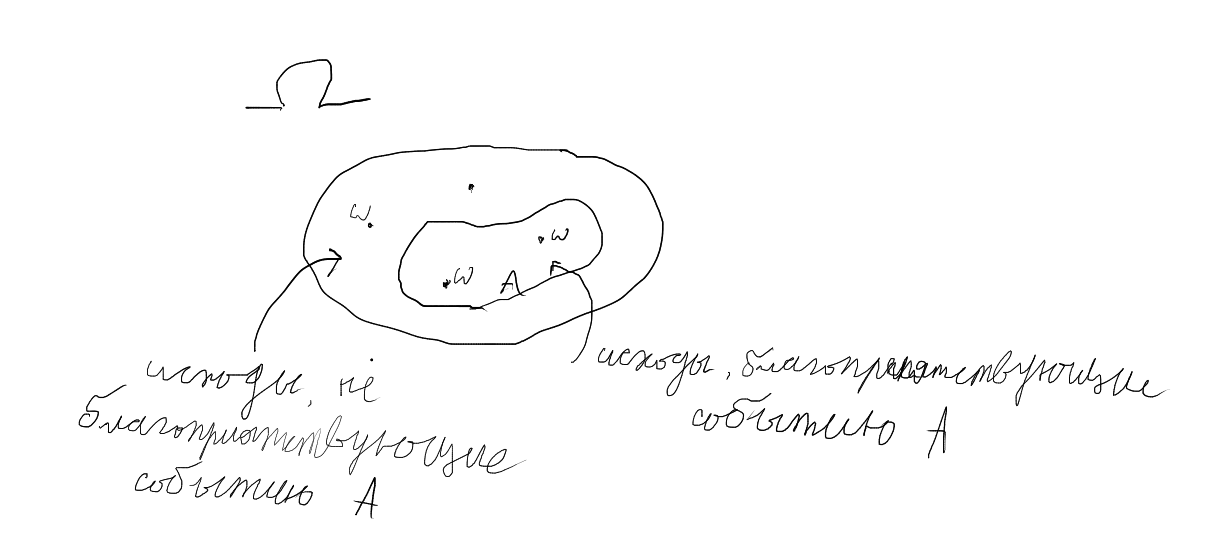 Ω
ω
ω
ω
A
исходы, не
благоприятствующие
событию A
исходы, благоприятствующие
событию A